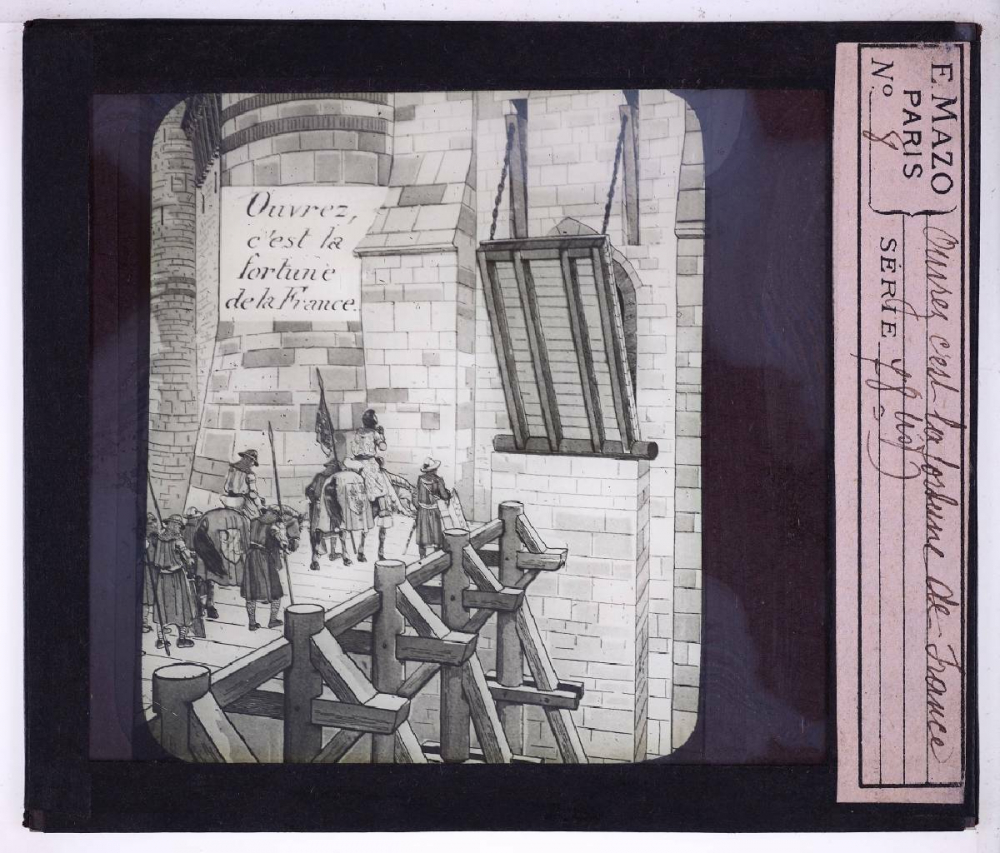 Ouvrez,
c'est la
fortune
de la France.
E. MAZO
PARIS
No 8
SÉRIE
Ouvrez c'est la fortune de France